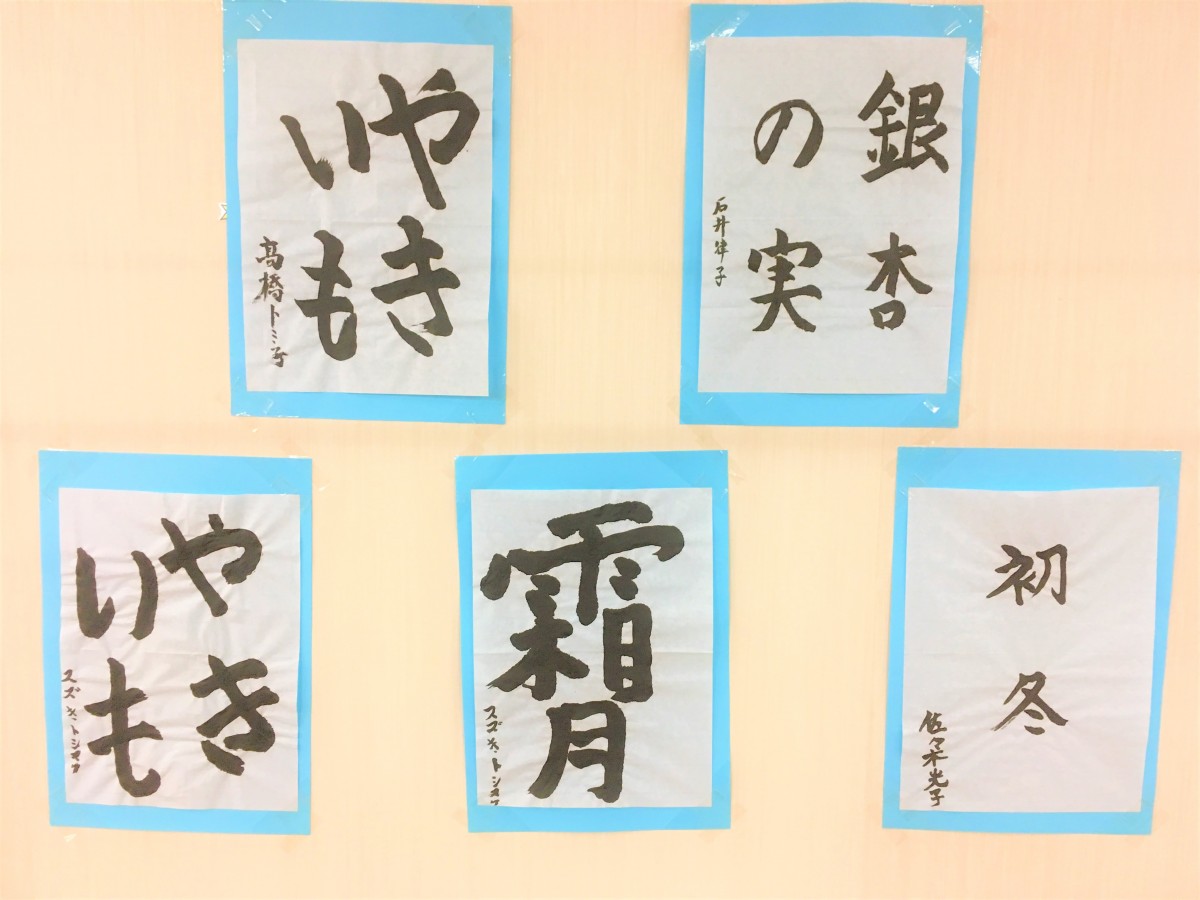 やき
いも
高橋トミ子
銀杏
の実
石井律子
やき
いも
スズキ
霜月
スズキ
初冬
佐々木光子